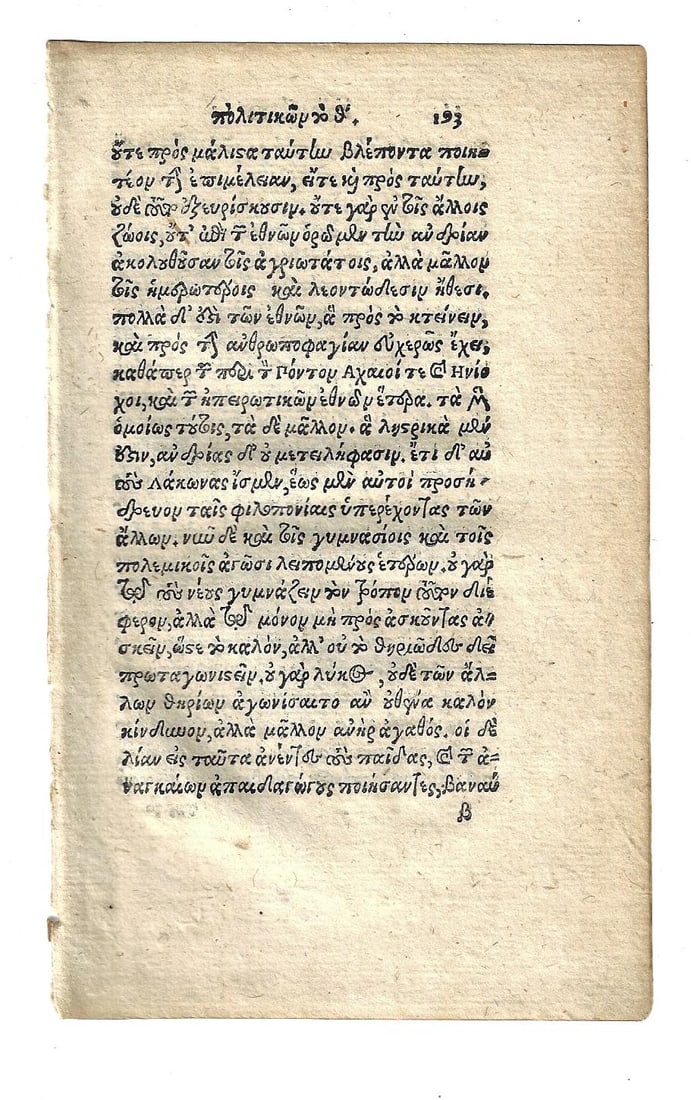 πολιτικῶν τὸ θ΄. 193
ὔτε πρὸς μάλιςα ταύτίω βλέποντα ποιη-
τέον τὴν ἐπιμέλειαν, εἴτε κỳ πρὸς ταύτίω,
ὐδὲ τῦτο ἐξευρίσκυσιν. ὔτε γὰρ ἐν τοῖς ἄλλοις
ζώοις, ὔτ' ἐπὶ τῶν ἐθνῶν ὁρῶμεν τίω ανδρίαν
ἀκολυθῦσαν τοῖς ἀγριωτάτοις, ἀλλὰ μᾶλλον
τοῖς ἡμερωτέροις καὶ λεοντώδεσιν ἤθεσι.
πολλὰ δ' ὅτι τῶν ἐθνῶν, ἃ πρὸς τὸ κτείνειν,
καὶ πρὸς τὴν ἀνθρωποφαγίαν εὐχερῶς ἔχει,
καθάπερ τῶν περὶ τὸν Πόντον Αχαιοί τε καὶ Ηνίο
χοι, καὶ τῶν ἠπειρωτικῶν ἐθνῶν ἕτερα. τὰ μὲν
ὁμοίως τύτοις, τὰ δὲ μᾶλλον. ἃ λῃςρικὰ μέν
ὐςιν, ανδρίας δ' ὐ μετειλήφασιν. ἔτι δ' αὐ
τὺς Λάκωνας ἴσμεν, ἕως μὲν αὐτοὶ προσή-
δρευον ταῖς φιλοπονίαις ὑπερέχοντας τῶν
ἄλλων. νιῦ δὲ καὶ τοῖς γυμνασίοις καὶ τοῖς
πολεμικοῖς ἀγῶσι λειπομένυς ἑτέρων. ὐ γὰρ
τῷ τὺς νέυς γυμνάζειν τὸν τρόπον τῦτον διέ
φερον, ἀλλὰ τῷ μόνον μὴ πρὸς ἀσκῦντας ἀ-
σκεῖν, ὥςε τὸ καλὸν, ἀλλ' οὐ τὸ θηριῶδες δεῖ
πρωταγωνιςεῖν. ὐ γὰρ λύκος, ὐδὲ τῶν ἄλ=
λων θηρίων ἀγωνίσαιτο αν ὐθένα καλὸν
κίνδυνον, ἀλλὰ μᾶλλον ανὴρ ἀγαθός. οἱ δὲ
λίαν εἰς ταῦτα ἀνέντες τὺς παῖδας, καὶ τῶν ἀ-
ναγκαίων ἀπαιδαγώγυς ποιήσαντες, βαναύ
β